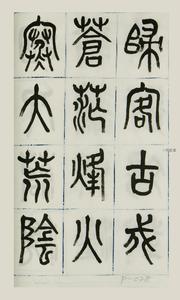 歸客古戍
蒼茫烽火
寒大荒陰